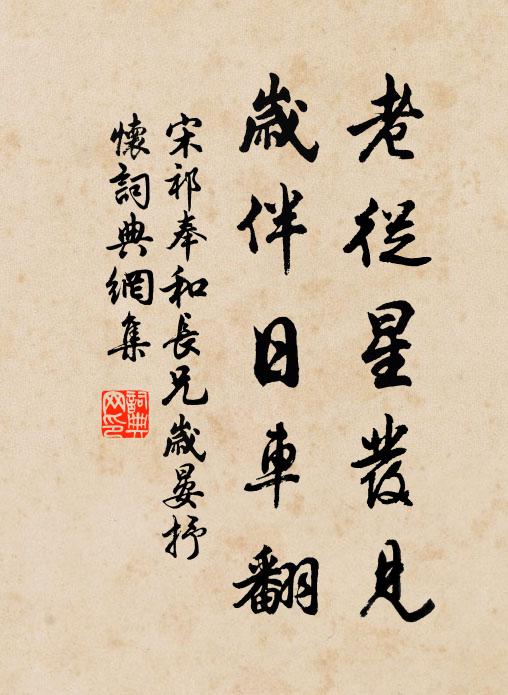 老從星發見
歲伴日車翻
宋祁奉和長兄歲晏抒
懷詞典網集
詞典
网印